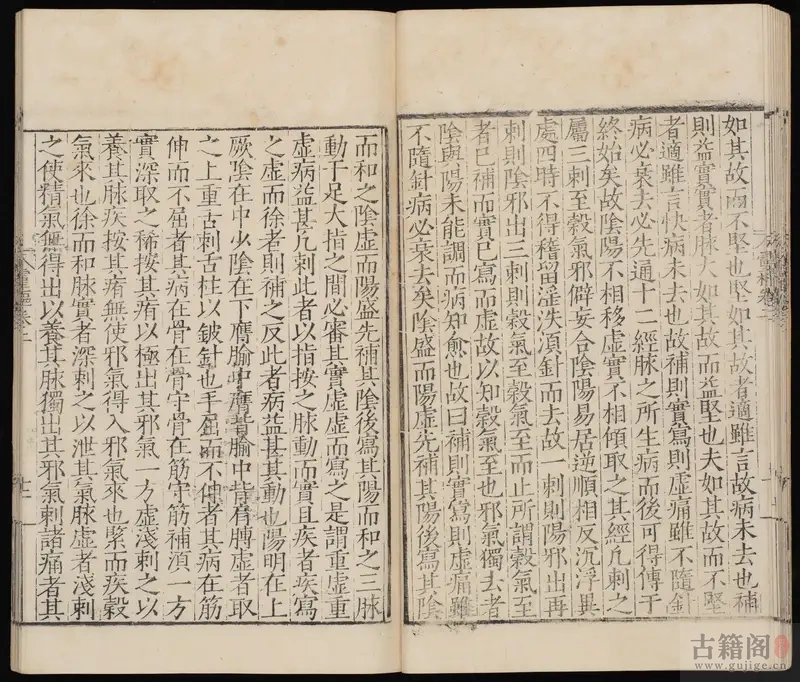 如其故而不堅也堅如其故者適雖言故病未去也補
則益實實者脉大如其故而益堅也夫如其故而不堅
者適雖言快病未去也故補則實寫則虛痛雖不隨針
病必衰去必先通十二經脉之所生病而後可得傳于
終始矣故陰陽不相移虛實不相傾取之其經凢刺之
屬三刺至穀氣邪僻妄合陰陽易居逆順相反沉浮異
處四時不得稽留淫泆湏針而去故一刺則陽邪出再
刺則陰邪出三刺則穀氣至穀氣至而止所謂穀氣至
者已補而實已寫而虛故以知穀氣至也邪氣獨去者
陰與陽未能調而病知愈也故曰補則實寫則虛痛雖
不隨針病必衰去矣陰盛而陽虛先補其陽後寫其陰
而和之陰虛而陽盛先補其陰後寫其陽而和之三脉
動于足大指之間必審其實虛虛而寫之是謂重虛重
虛病益甚凢刺此者以指按之脉動而實且疾者疾寫
之虛而徐者則補之反此者病益甚其動也陽明在上
厥陰在中少陰在下膺腧中膺背腧中背肩膊虛者取
之上重舌刺舌柱以鈹針也手屈而不伸者其病在筋
伸而不屈者其病在骨在骨守骨在筋守筋補湏一方
實深取之稀按其痏以極出其邪氣一方虛淺刺之以
養其脉疾按其痏無使邪氣得入邪氣來也緊而疾穀
氣來也徐而和脉實者深刺之以泄其氣脉虛者淺刺
之使精氣無得出以養其脉獨出其邪氣刺諸痛者其
古籍阁
www.gujige.cn